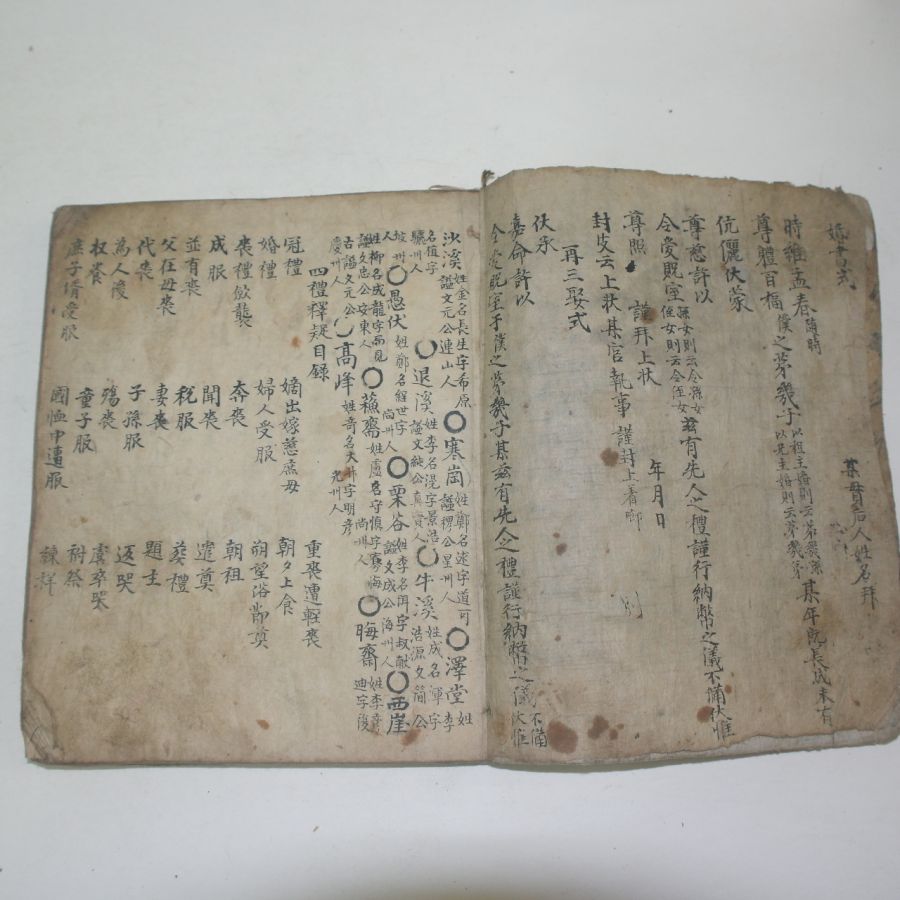 婚書式
某貫后人姓名拜
時維孟春隨時
尊體百福僕之第幾子以祖主婚則云第幾孫以兄主婚則云第幾弟某年旣長成未有
伉儷伏蒙
尊慈許以
令愛貺室孫女則云令孫女侄女則云令侄女玆有先人之禮謹行納幣之儀不備伏惟
尊照 謹拜上狀 年月日
封皮云上狀某官執事 謹封上
再三娶式
伏承
嘉命許以
令愛貺室于僕之第幾子某玆有先人之禮謹行納幣之儀不備伏惟
沙溪姓金名長生字希原謚文元公連山人○寒岡姓鄭名逑字道可謚穆公星州人○澤堂姓李
名植字 驪州人○退溪姓李名滉字景浩謚文純公眞寶人○牛溪姓成名渾字浩源文簡公
坡州人○愚伏姓鄭名經世字 尙州人○栗谷姓李名珥字叔獻謚文成公海州人○西崖
姓柳名成龍字而見謚文忠公安東人○蘇齋姓盧名守愼字寡悔 尙州人○晦齋姓李彦迪字復
古謚文元公慶州人○高峰姓奇名大升字明彦 光州人
四禮釋疑目錄
冠禮 嫡出嫁慈庶母 重喪遭輕喪
婚禮 婦人受服 朝夕上食
喪禮斂襲 奔喪 朔望浴節奠
成服 聞喪 朝祖
並有喪 稅服 遣奠
父在母喪 妻喪 葬禮
代喪 子孫服 題主
爲人後 殤喪 返哭
收養 童子服 虞卒哭
國恤中遭服 祔祭
練祥